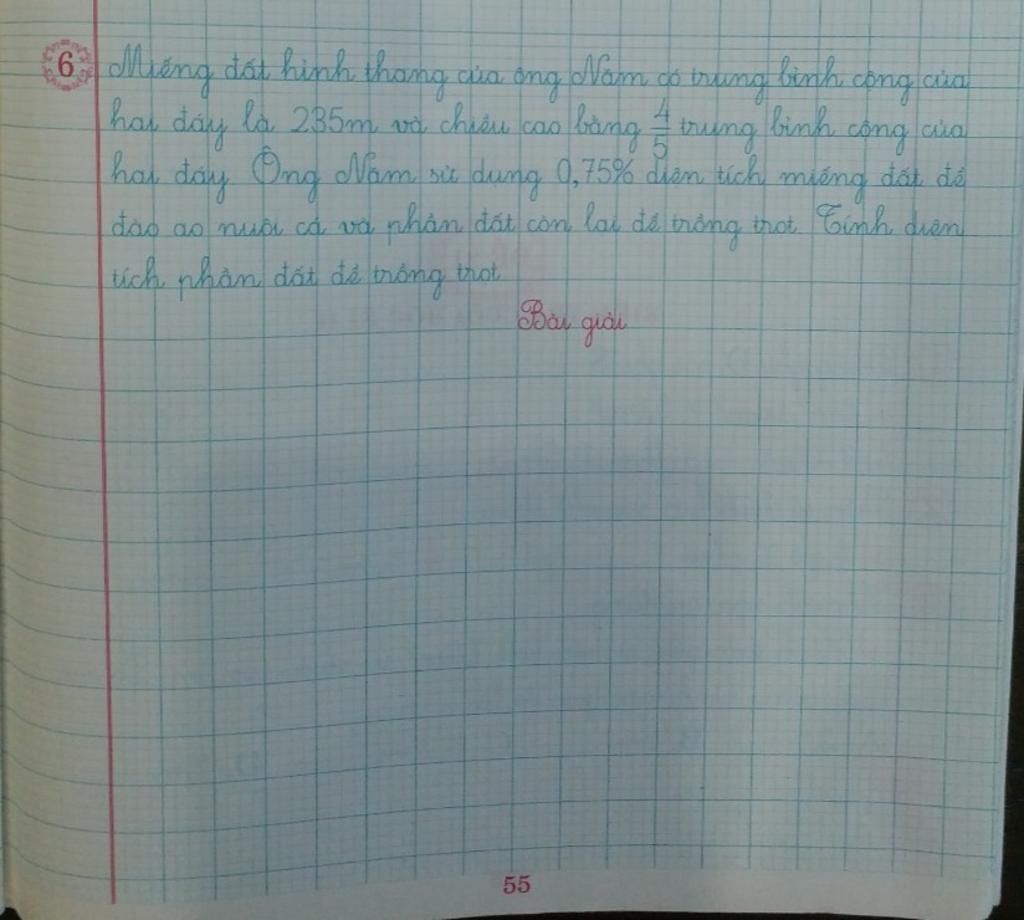 6 Miếng đất hình thang của ông Năm có trung bình cộng của
hai đáy là 235m và chiều cao bằng 4/5 trung bình cộng của
hai đáy. Ông Năm sử dụng 0,75% diện tích miếng đất để
đào ao nuôi cá và phần đất còn lại để trồng trọt. Tính diện
tích phần đất để trồng trọt.
Bài giải
55